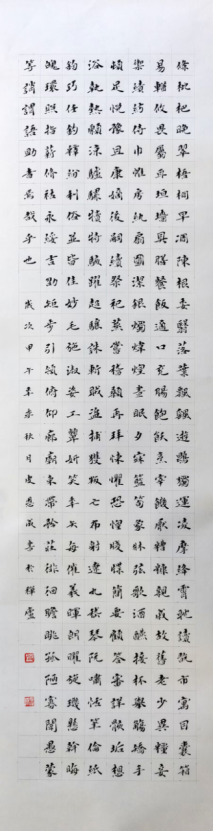 條枇杷晚翠梧桐早凋陳根委翳落葉飄颻遊鵾獨運凌摩絳霄耽讀翫市寓目囊箱
易輶攸畏屬耳垣墻具膳餐飯適口充腸飽飫烹宰飢厭糟糠親戚故舊老少異糧妾
禦績紡侍巾帷房紈扇圓潔銀燭煒煌晝眠夕寐籃筍象牀弦歌酒讌接杯舉觴矯手
頓足悅豫且康嫡後嗣續祭祀蒸嘗稽顙再拜悚懼恐惶牋牒簡要顧答審詳骸垢想
浴執熱願涼驢騾犢特駭躍超驤誅斬賊盜捕獲叛亡布射遼丸嵇琴阮嘯恬筆倫紙
鈞巧任釣釋紛利俗並皆佳妙毛施淑姿工顰妍笑年矢每催曦暉朗曜璇璣懸斡晦
魄環照指薪修祜永綏吉劭矩步引領俯仰廊廟束帶矜莊徘徊瞻眺孤陋寡聞愚蒙
等誚謂語助者焉哉乎也 歲次甲午年末秋月 思成書於禪虛